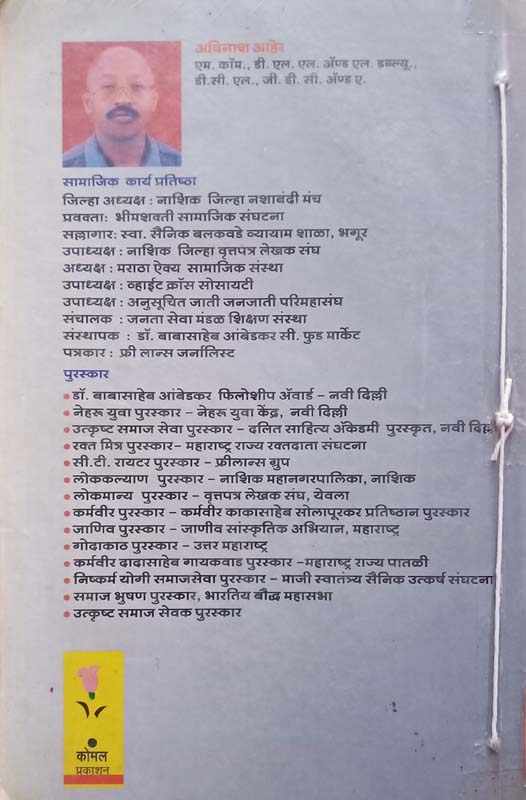 अविनाश आहेर
एम. कॉम., डी. एल. एल. ॲण्ड एल. डब्ल्यू.,
डी.सी. एल., जी. डी. सी. ॲण्ड ए.
सामाजिक कार्य प्रतिष्ठा
जिल्हा अध्यक्ष : नाशिक जिल्हा नशाबंदी मंच
प्रववता: भीमशक्ती सामाजिक संघटना
सल्लागार: स्वा. सैनिक बलकवडे व्यायाम शाळा, भगूर
उपाध्यक्ष : नाशिक जिल्हा वृत्तपत्र लेखक संघ
अध्यक्ष : मराठा ऐक्य सामाजिक संस्था
उपाध्यक्ष : व्हाईट क्रॉस सोसायटी
उपाध्यक्ष : अनुसूचित जाती जनजाती परिमहासंघ
संचालक : जनता सेवा मंडळ शिक्षण संस्था
संस्थापक : डॉ. बाबासाहेब आंबेडकर सी. फुड मार्केट
पत्रकार : फ्री लान्स जर्नालिस्ट
पुरस्कार
• डॉ. बाबासाहेब आंबेडकर फिलोशीप ॲवार्ड – नवी दिल्ली
• नेहरू युवा पुरस्कार – नेहरू युवा केंद्र, नवी दिल्ली
• उत्कृष्ट समाज सेवा पुरस्कार – दलित साहित्य अ‍ॅकेडमी पुरस्कृत, नवी दिल्ली
• रक्त मित्र पुरस्कार– महाराष्ट्र राज्य रक्तदाता संघटना
• सी.टी. रायटर पुरस्कार – फ्रीलान्स ग्रुप
• लोककल्याण पुरस्कार – नाशिक महानगरपालिका, नाशिक
• लोकमान्य पुरस्कार – वृत्तपत्र लेखक संघ, येवला
• कर्मवीर पुरस्कार – कर्मवीर काकासाहेब सोलापूरकर प्रतिष्ठान पुरस्कार
• जाणिव पुरस्कार – जाणीव सांस्कृतिक अभियान, महाराष्ट्र
• गोदाकाठ पुरस्कार – उत्तर महाराष्ट्र
• कर्मवीर दादासाहेब गायकवाड पुरस्कार –महाराष्ट्र राज्य पातळी
• निष्कर्म योगी समाजसेवा पुरस्कार – माजी स्वातंत्र्य सैनिक उत्कर्ष संघटना
• समाज भुषण पुरस्कार, भारतिय बौद्ध महासभा
• उत्कृष्ट समाज सेवक पुरस्कार
कोमल
प्रकाशन